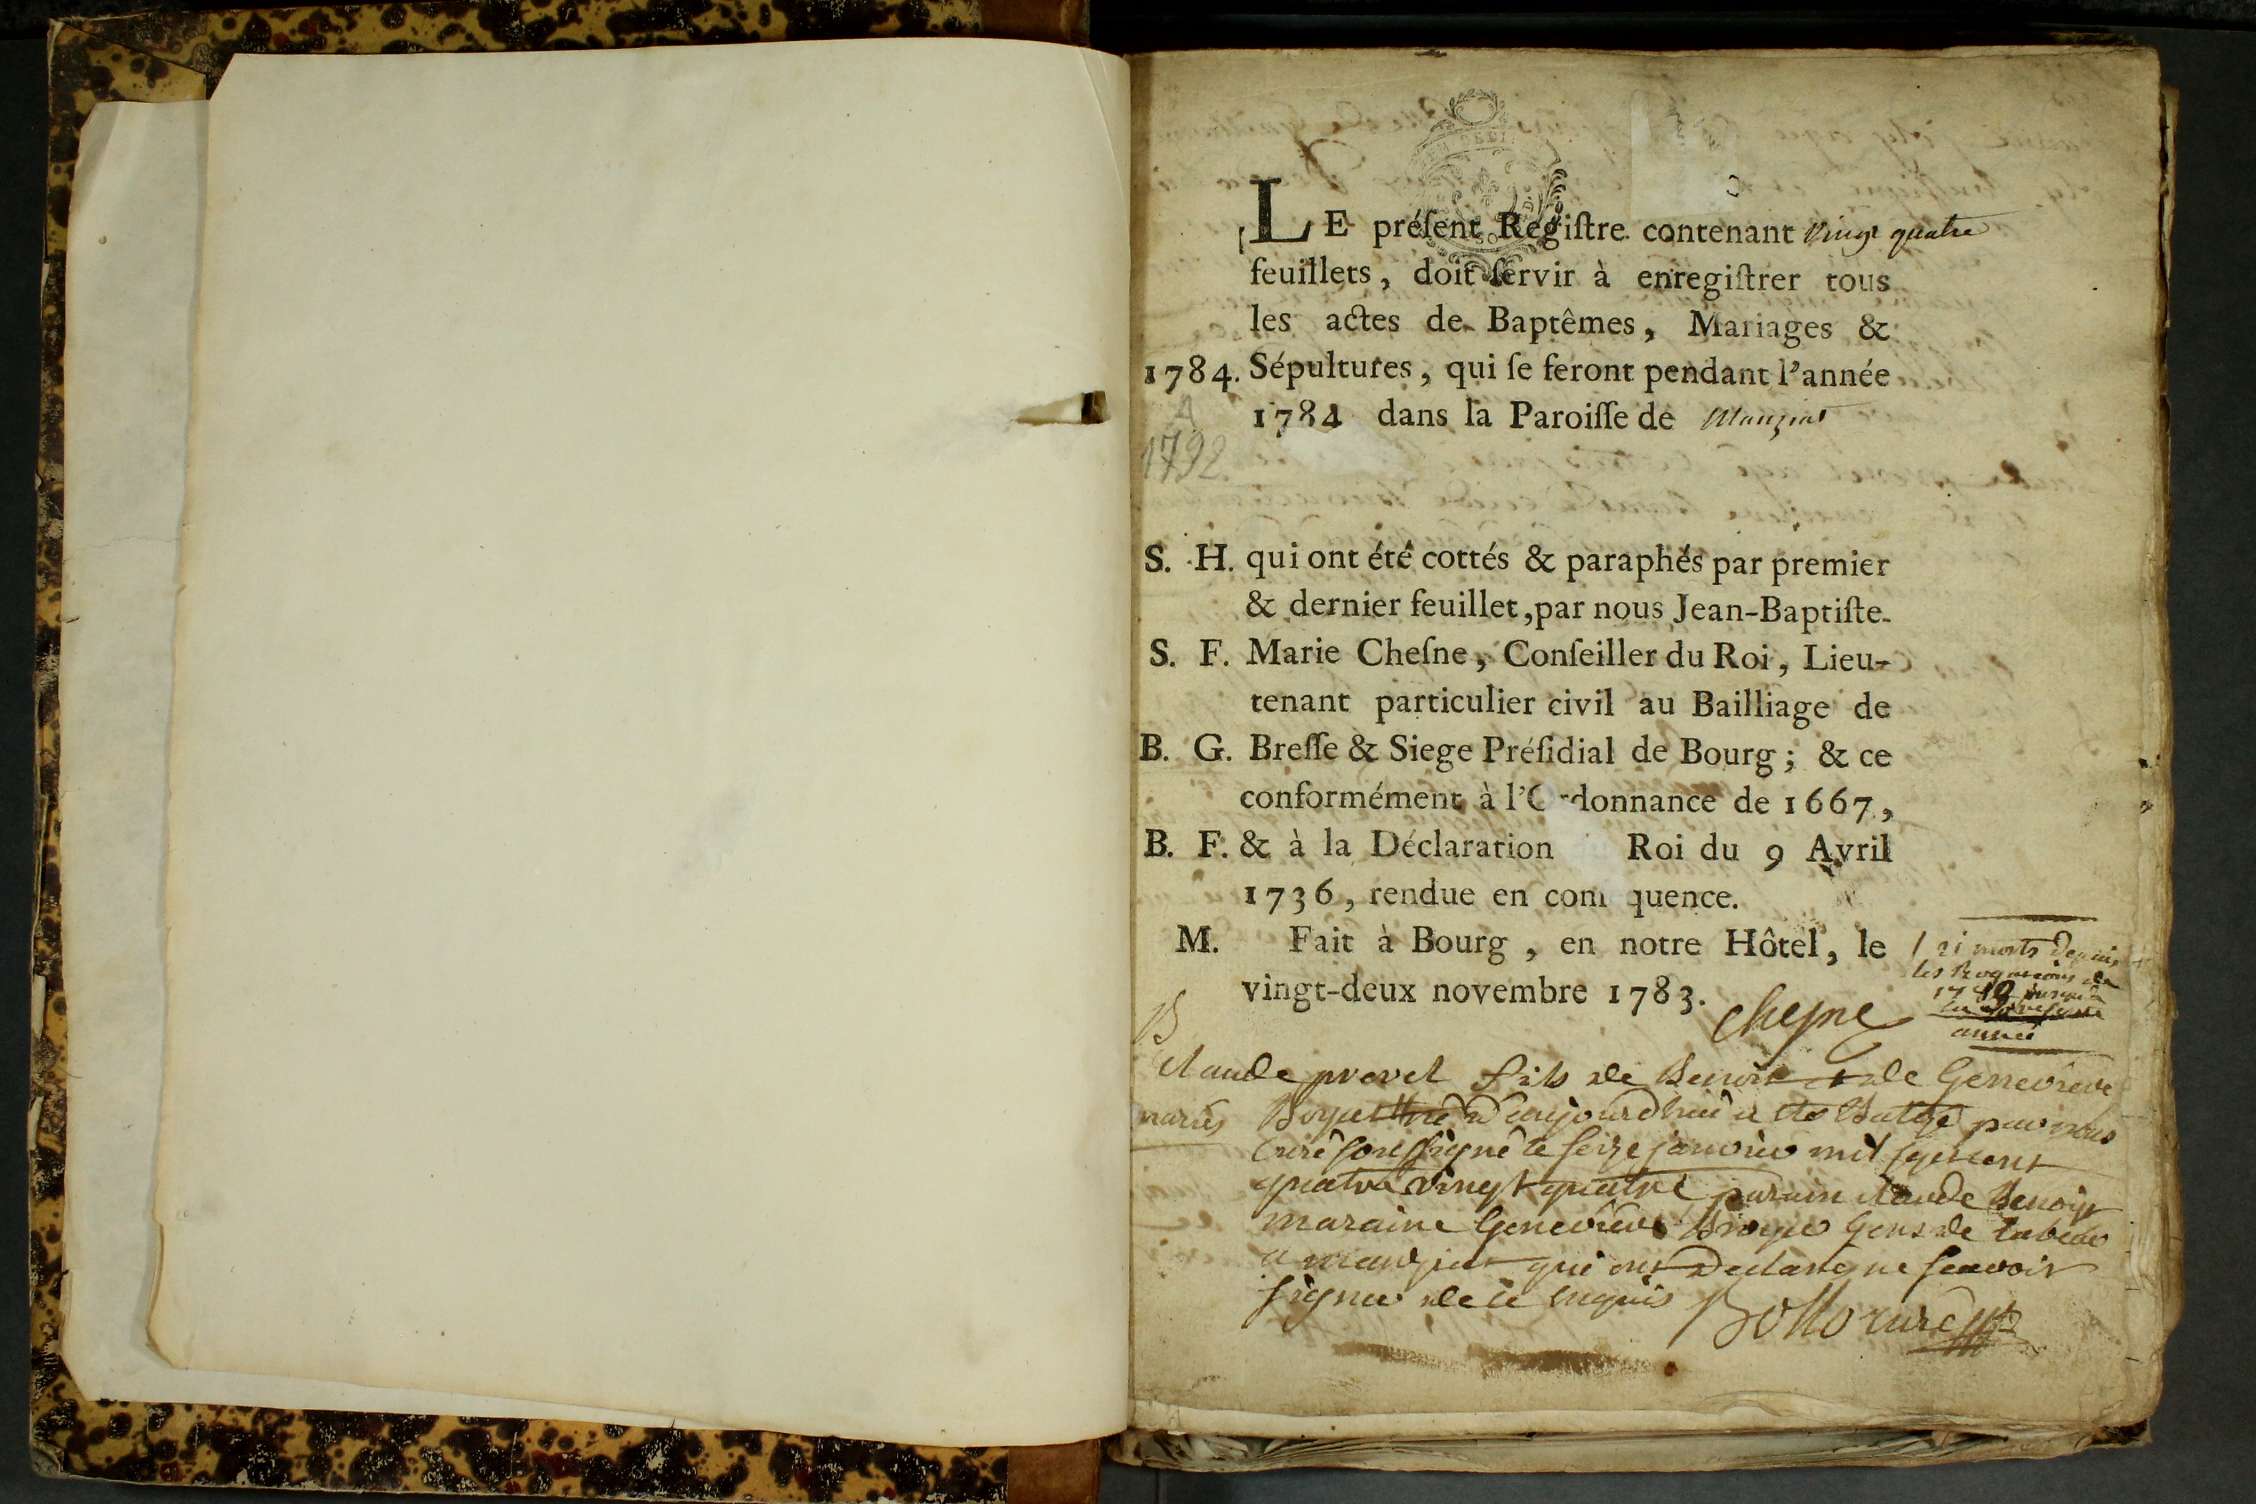 LE préſent Regiſtre contenant vingt quatre
feuillets, doit ſervir à enregiſtrer tous
les actes de Baptêmes, Mariages &
1784. Sépultures, qui ſe feront pendant l'année
A 1784 dans la Paroiſſe de Manziat
1792.
S. H. qui ont été cottés & paraphés par premier
& dernier feuillet, par nous Jean-Baptiſte-
S. F. Marie Cheſne, Conſeiller du Roi, Lieu-
tenant particulier civil au Bailliage de
B. G. Breſſe & Siege Préſidial de Bourg; & ce
conformément à l'Ordonnance de 1667,
B. F. & à la Déclaration Roi du 9 Avril
1736, rendue en quence.
M. Fait à Bourg, en notre Hôtel, le
vingt-deux novembre 1783.
chesne
21 morts depuis
les
178
la presente
année
B
Claude prevel fils de Benoit et de Genevieve
mariés Boyer né d'aujourdhui a été par nous
Curé soussigné le seize janvier mil sept cent
quatre vingt quatre parain claude Benoit
maraine Genevieve gens de
a manziat qui ont declaré ne scavoir
signer de ce enquis
curé